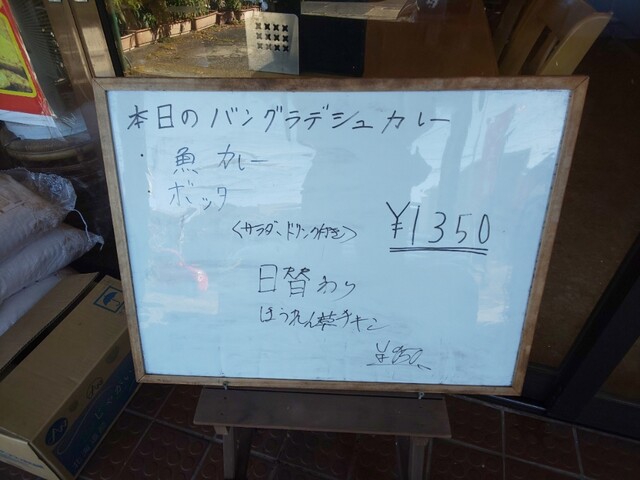 本日のバングラデシュカレー
・魚カレー
・ボッタ
<サラダ、ドリンク付き>
¥1350
日替わり
ほうれん草チキン